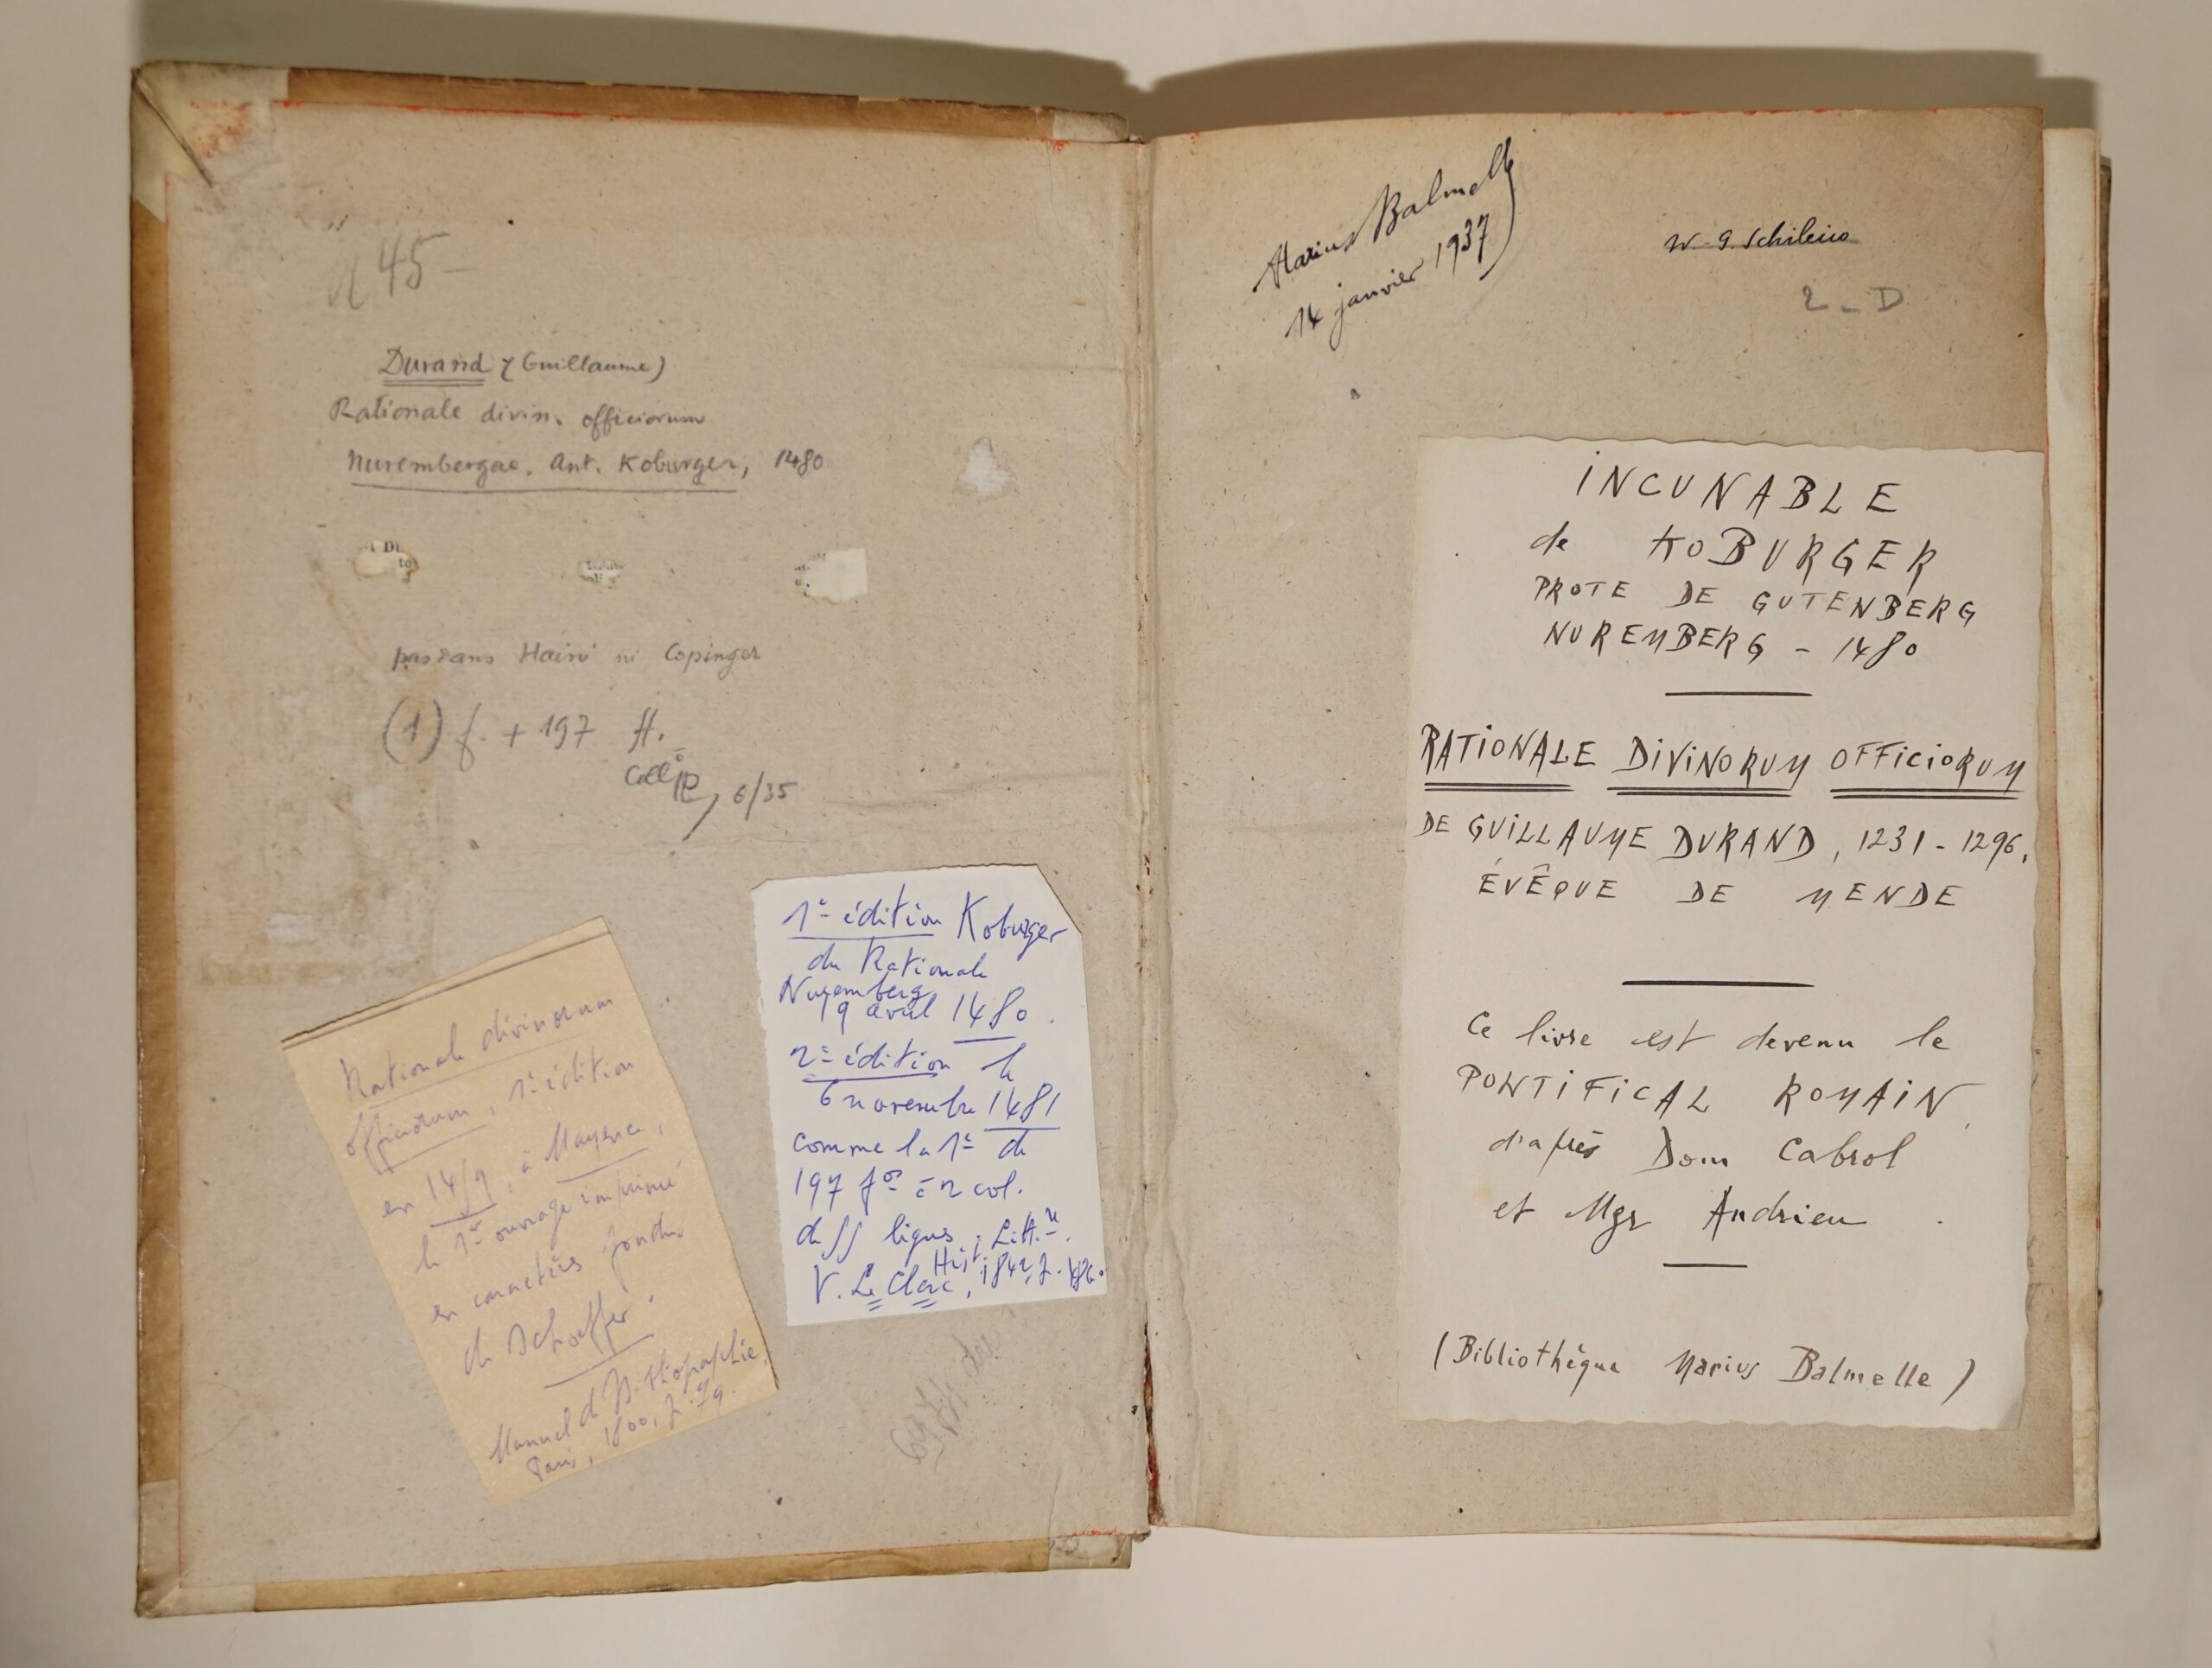 45-
Durand (Guillaume)
Rationale divin. officiorum
Nurembergae. Ant. Koburger, 1480
DI
to
pas dans Hain ni Copinger
(1) f. + 197 ff.
Coll 6/35
Rationale divinorum
officiorum, 1e édition
en 1459, à Mayence,
le 1er ouvrage imprimé
en caractères fondus
de Schoeffer.
Manuel de Bibliographie,
Paris, 1800, p.
1e édition Koburger
du Rationale
Nuremberg
19 avril 1480.
2e édition le
6 novembre 1481
comme la 1e de
197 fos à 2 col.
de 55 lignes; Litt.
Hist.
V. Le Clerc, 1842, p.
Marius Balmelle
14 janvier 1937
W. G. Schileico
2-D
INCUNABLE
de KOBURGER
PROTE DE GUTENBERG
NUREMBERG - 1480
RATIONALE DIVINORUM OFFICIORUM
DE GUILLAUME DURAND, 1231-1296,
ÉVÊQUE DE MENDE
Ce livre est devenu le
PONTIFICAL ROMAIN,
d'après Dom Cabrol
et Mgr Andrieu.
(Bibliothèque Marius Balmelle)